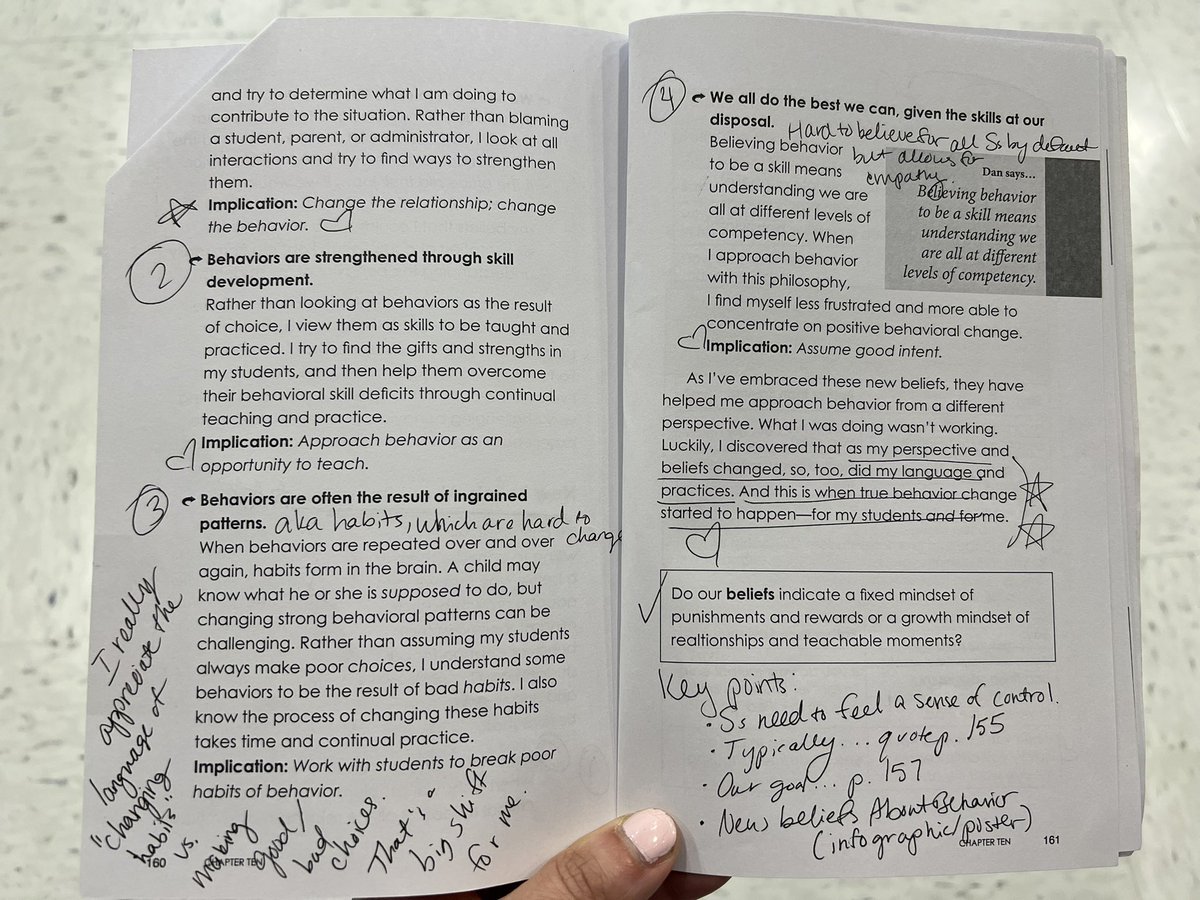 and try to determine what I am doing to
contribute to the situation. Rather than blaming
a student, parent, or administrator, I look at all
interactions and try to find ways to strengthen
them.
Implication: Change the relationship; change
the behavior.
2
Behaviors are strengthened through skill
development.
Rather than looking at behaviors as the result
of choice, I view them as skills to be taught and
practiced. I try to find the gifts and strengths in
my students, and then help them overcome
their behavioral skill deficits through continual
teaching and practice.
Implication: Approach behavior as an
opportunity to teach.
3
Behaviors are often the result of ingrained
patterns. aka habits, which are hard to
change
When behaviors are repeated over and over
again, habits form in the brain. A child may
know what he or she is supposed to do, but
changing strong behavioral patterns can be
challenging. Rather than assuming my students
always make poor choices, I understand some
behaviors to be the result of bad habits. I also
know the process of changing these habits
takes time and continual practice.
Implication: Work with students to break poor
habits of behavior.
I really
appreciate the
language of
"changing
habits"
vs.
making
good/
bad
choices.
That's a
big shift
for me.
160 CHAPTER TEN
4
We all do the best we can, given the skills at our
disposal. Hard to believe for all Ss by default
but allows for
empathy.
Believing behavior
to be a skill means
understanding we are
all at different levels of
competency. When
I approach behavior
with this philosophy,
I find myself less frustrated and more able to
concentrate on positive behavioral change.
Implication: Assume good intent.
Dan says...
Believing behavior
to be a skill means
understanding we
are all at different
levels of competency.
As I've embraced these new beliefs, they have
helped me approach behavior from a different
perspective. What I was doing wasn't working.
Luckily, I discovered that as my perspective and
beliefs changed, so, too, did my language and
practices. And this is when true behavior change
started to happen—for my students and for me.
Do our beliefs indicate a fixed mindset of
punishments and rewards or a growth mindset of
realtionships and teachable moments?
Key points:
• Ss need to feel a sense of control.
• Typically... quote p. 155
• Our goal... p. 157
• New beliefs About Behavior
(infographic/poster)
CHAPTER TEN 161